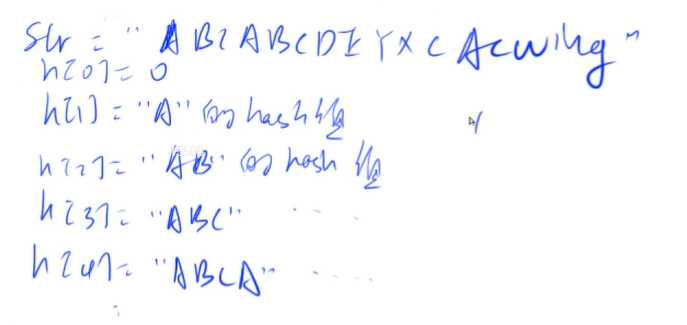 str = "ABCABCDEYXCAcwing"
h[0] = 0
h[1] = "A" 的 hash 值
h[2] = "AB" 的 hash 值
h[3] = "ABC" ....
h[4] = "ABCA" ....